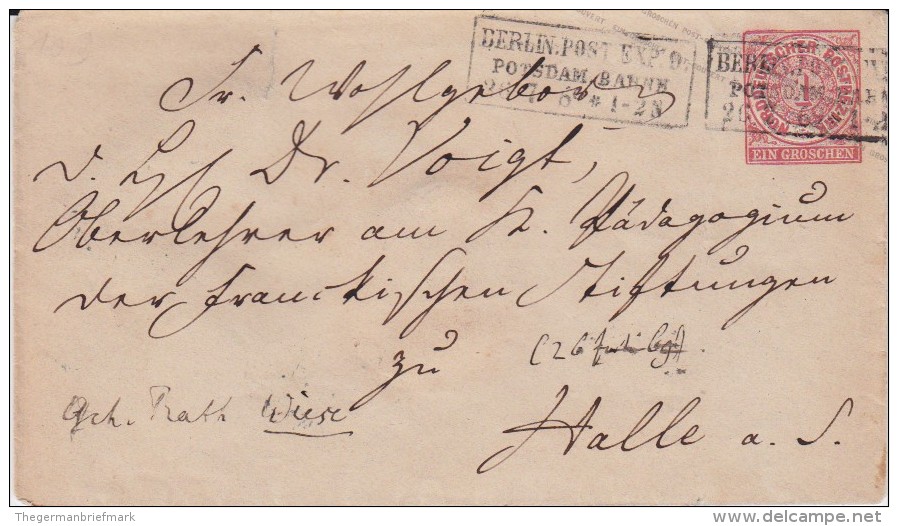 BERLIN. POST EXP. 9.
POTSDAM. BAHNE
1-2 N
NORDDEUTSCHER POSTBEZIRK
1
EIN GROSCHEN
Sr. Wohlgeboren
d. H. Dr. Voigt,
Oberlehrer am K. Pädagogium
der Franckischen Stiftungen
zu
(26 Juli 69).
Geh. Rath Wiese
Halle a. S.
Thegermanbriefmark
www.delcampe.net